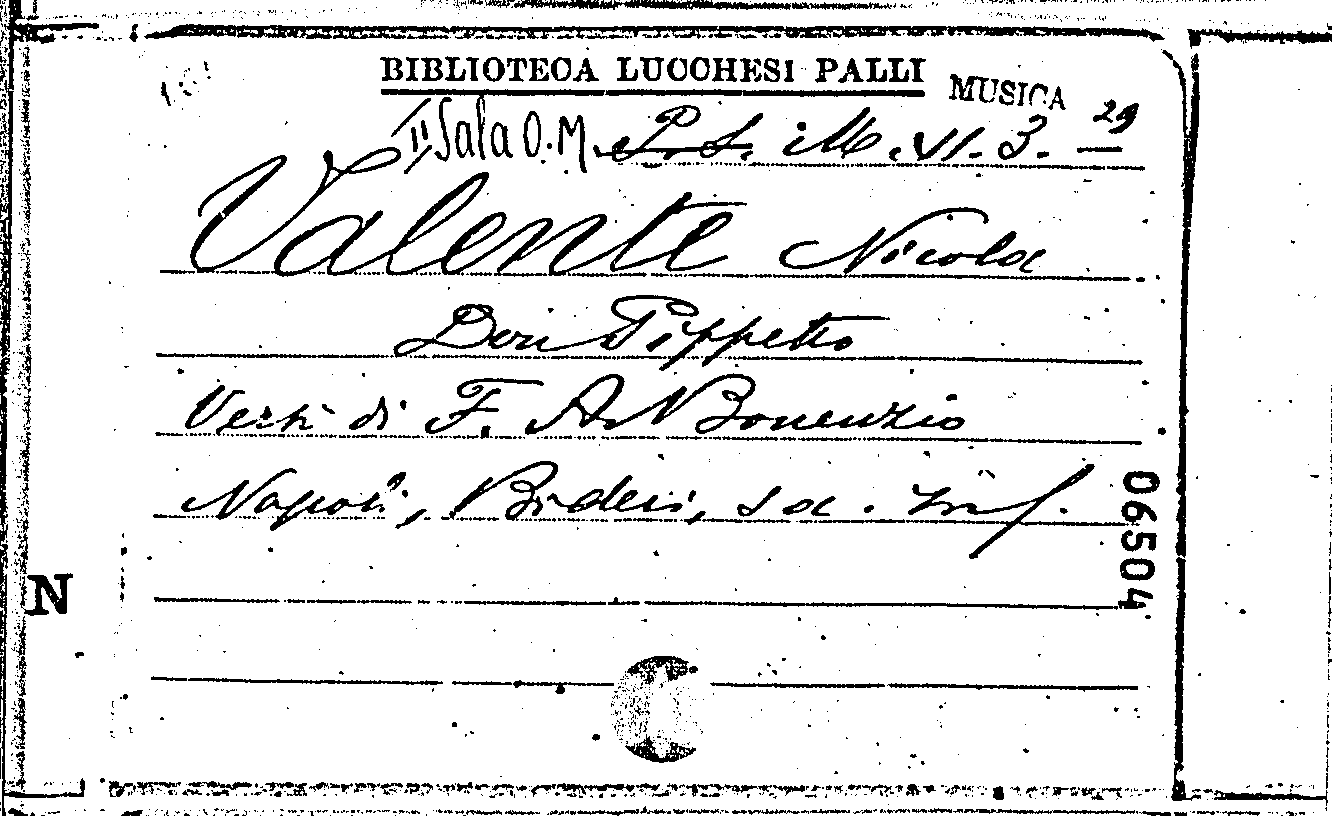 BIBLIOTECA LUCCHESI PALLI
MUSICA
II Sala O.M. P.S. M. VI. 3. 29
Valente Nicola
Don Pippetto
Versi di F. A. Bonenzio
Napoli, Bideri, s.a. in f.
06504
N